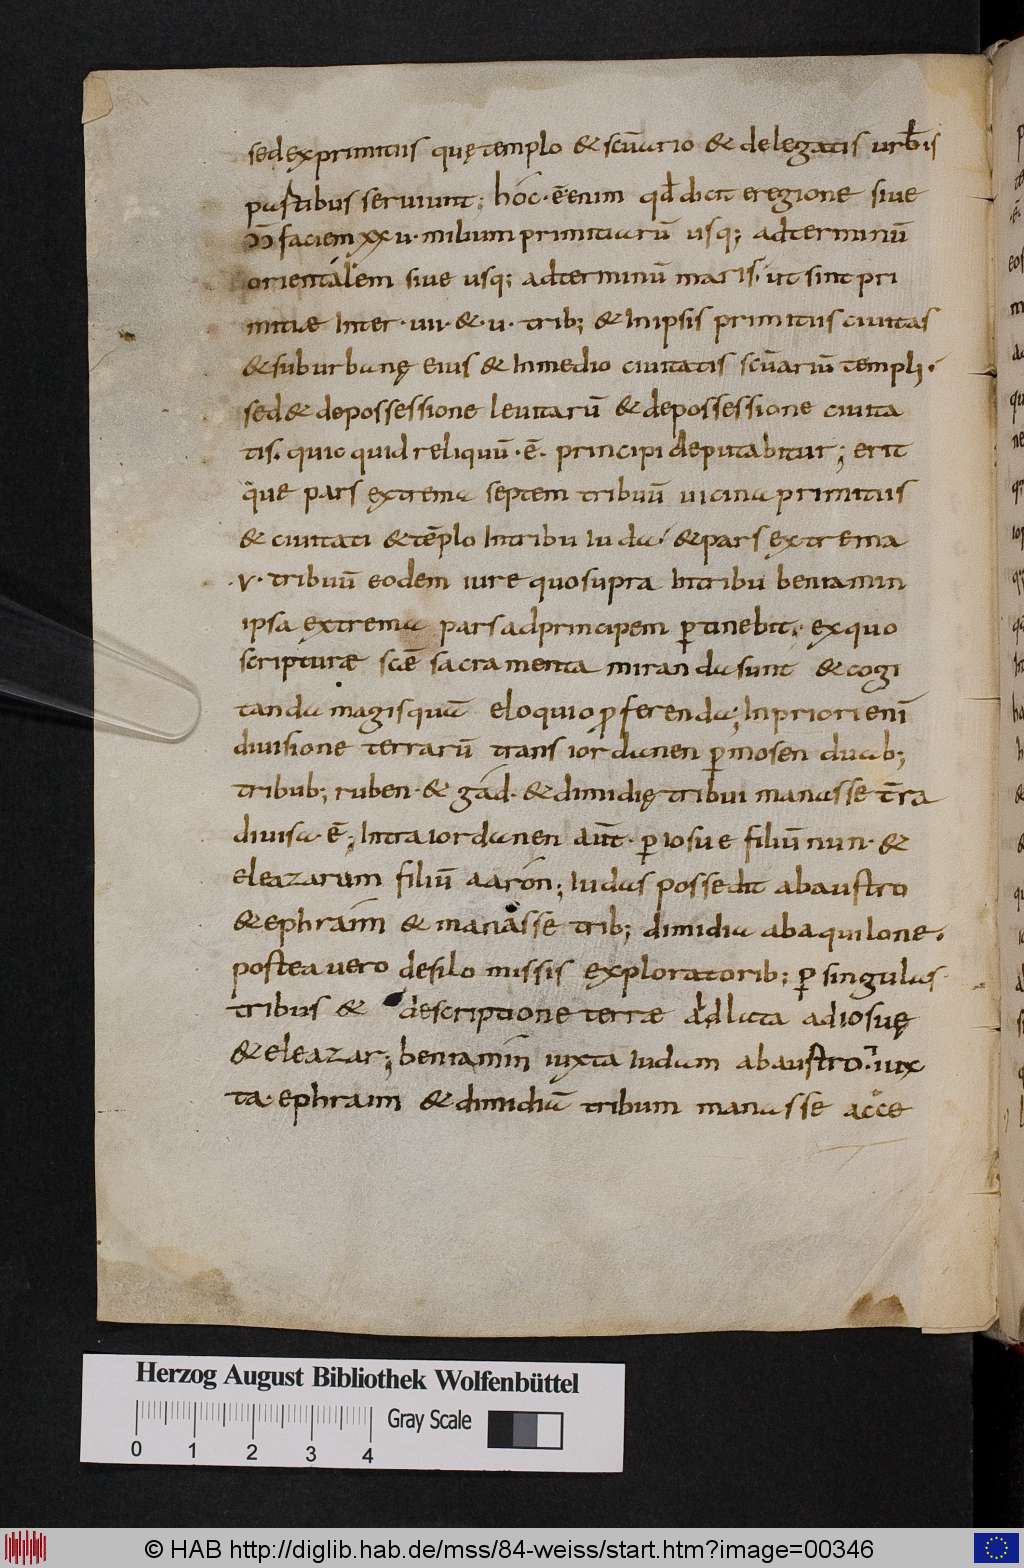 sedexprimitiis quę templo & scu̅ario & delegatis urb̅is
partibus seruiunt; hoc · e̅ enim qd̅ dicit eregione siue
faciem xxu · milium primitiaru̅ usq; adterminu̅
orientalem siue usq; adterminu̅ maris · ut sint pri
mitiae inter · uii · & · u · trib; & inipsis primitiis ciuitas
& suburbanę eius & inmedio ciuitatis scu̅ariu̅ templi ·
sed & depossessione leuitaru̅ & depossessione ciuita
tis · quicquid reliquu̅ · e̅ · principi deputabitur; erit
pars extrema septem tribuu̅ uicina primitiis
& ciuitati & te̅plo intribu iuda · & pars extrema
· v · tribuu̅ eodem iure quo supra intribu beniamin
ipsa extrema pars adprincipem ꝑtinebit; exquo
scripturae sce̅ sacramenta miranda sunt & cogi
tanda magisqua̅ eloquio ꝓferenda; Inpriori eni̅
diuisione terraru̅ trans iordanen ꝑ mosen duab;
tribub; ruben · & gad · & dimidię tribui manasse t̅ra
diuisa · e̅; Intra iordanen aut̅ · ꝑ iosue filiu̅ nun · &
eleazarum filiu̅ aaron; Iudas possedit abaustro
& ephraim & manasse trib; dimidia abaquilone ·
postea uero desilo missis exploratorib; ꝑ singulas
tribus & descriptione terrae adlata adiosuę
& eleazar; beniamin iuxta iudam abaustro · iux
ta · ephraim & dimidiu̅ tribum manasse acce
Herzog August Bibliothek Wolfenbüttel
0 1 2 3 4 Gray Scale
© HAB http://diglib.hab.de/mss/84-weiss/start.htm?image=00346